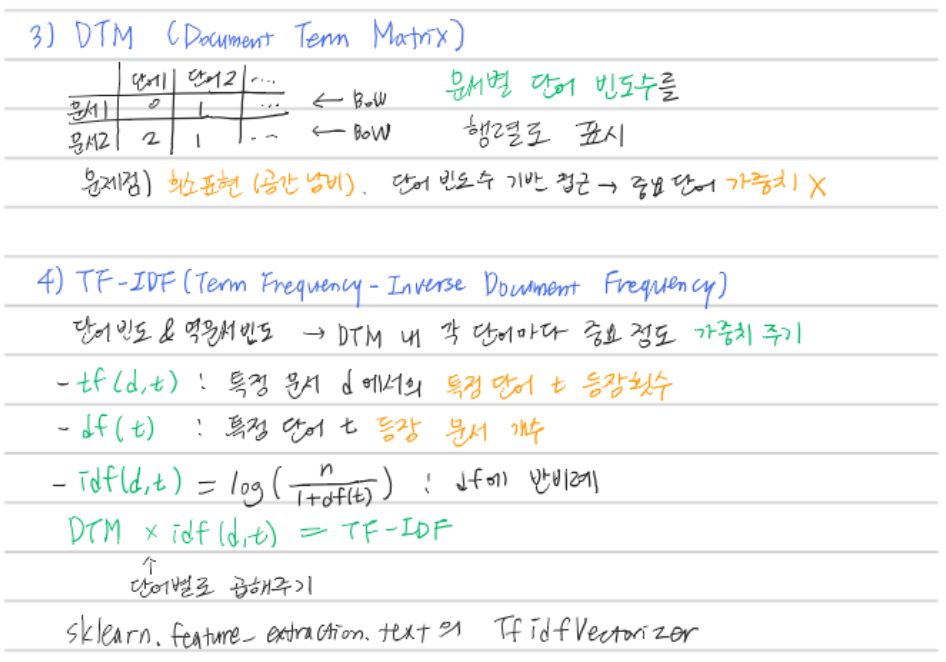 3) DTM (Document Term Matrix)
단어1 단어2 ...
문서1 0 1 ... ← BoW
문서2 2 1 ... ← BoW
문서별 단어 빈도수를
행렬로 표시
문제점) 희소표현 (공간 낭비). 단어 빈도수 기반 접근 → 중요 단어 가중치 X
4) TF-IDF (Term Frequency - Inverse Document Frequency)
단어 빈도 & 역문서 빈도 → DTM 내 각 단어마다 중요 정도 가중치 주기
- tf(d,t) : 특정 문서 d에서의 특정 단어 t 등장횟수
- df(t) : 특정 단어 t 등장 문서 개수
- idf(d,t) = log(n/1+df(t)) : df에 반비례
DTM × idf(d,t) = TF-IDF
↑
단어별로 곱해주기
sklearn.feature_extraction.text의 TfidfVectorizer